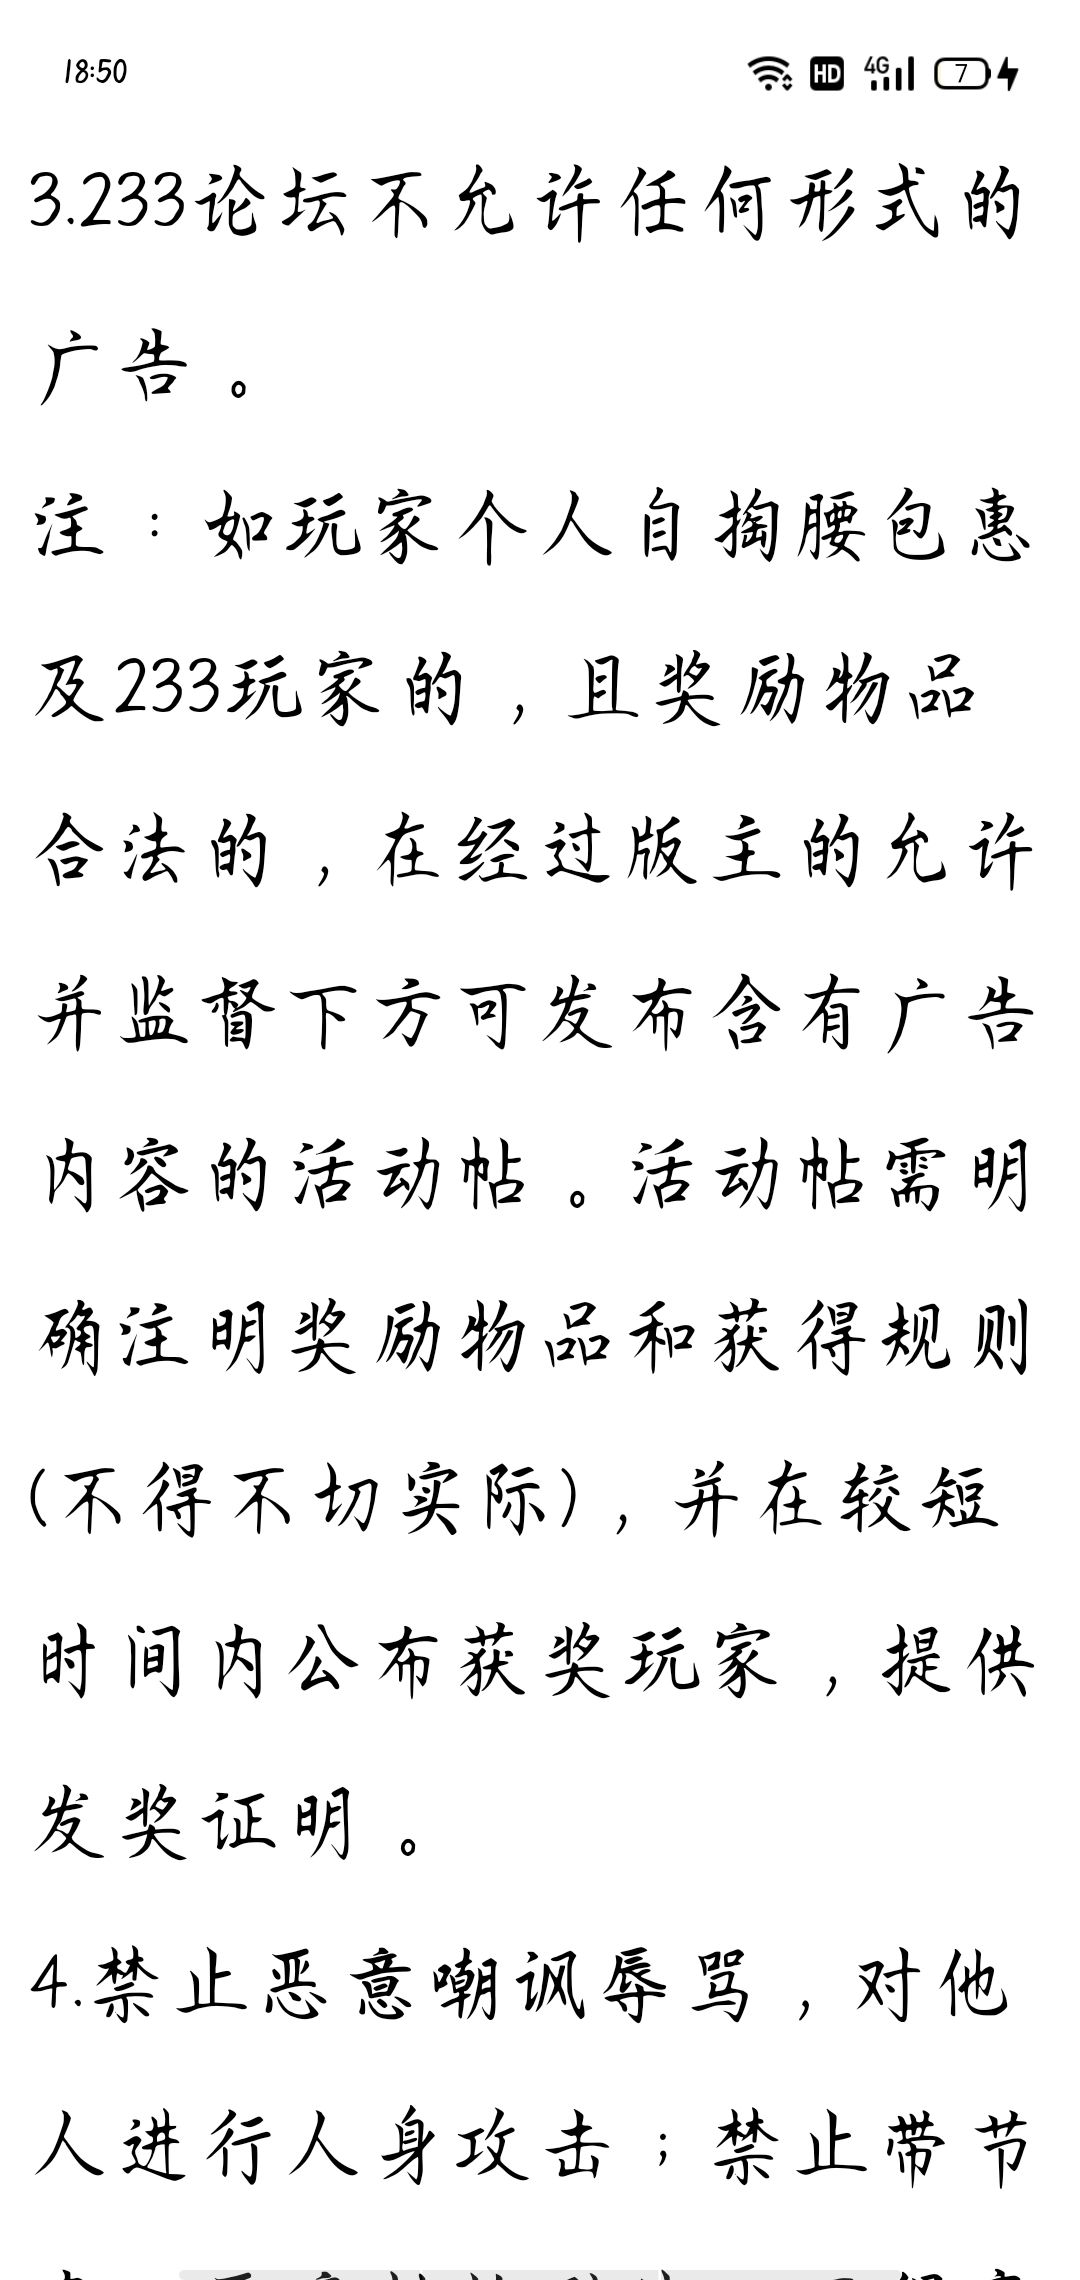 18:50 HD 4G 7
3.233论坛不允许任何形式的
广告。
注：如玩家个人自掏腰包惠
及233玩家的，且奖励物品
合法的，在经过版主的允许
并监督下方可发布含有广告
内容的活动帖。活动帖需明
确注明奖励物品和获得规则
(不得不切实际)，并在较短
时间内公布获奖玩家，提供
发奖证明。
4.禁止恶意嘲讽辱骂，对他
人进行人身攻击；禁止带节